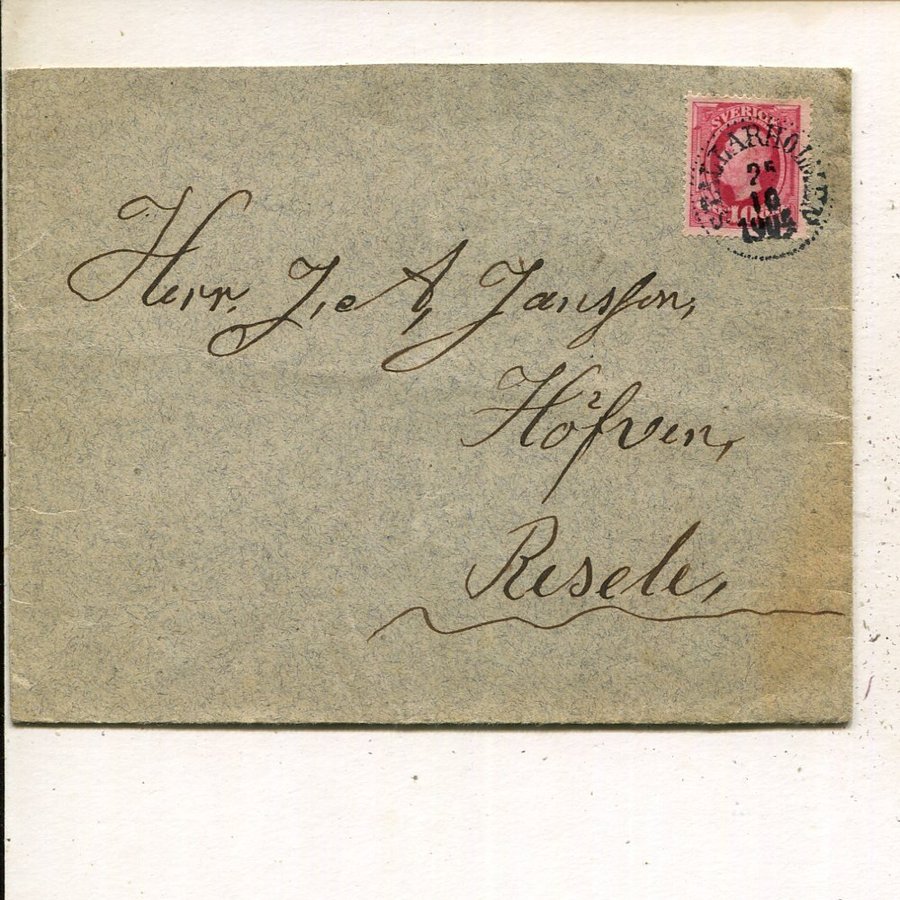 SVERIGE
10
STALLARHOLMEN
25
10
1905
Herr. J. A. Jansson,
Höfven,
Resele,